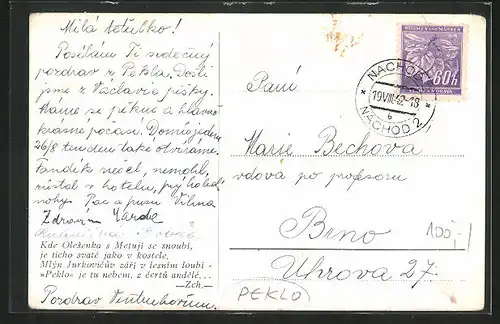 Milá tetulko!
Posílám Ti srdečný
pozdrav z Pekla. Došli
jsme z Václavic pěšky.
Máme se pěkně a hlavně
krásné počasí. Domů jedem
26/8 tendem také otvíráme.
Fandík nečel, nemohl,
zůstal v hotelu, prý ho bolí
nohy. Pac a pusu Vilma
Zdraví Jarda
Kde Olešenka s Metují se snoubí,
je ticho svaté jako v kostele,
Mlýn Jurkovičův září v lesním loubí -
»Peklo« je tu nebem, z čertů andělé...
—Zch.—
Pozdrav
BÖHMEN UND MÄHREN
60h
NACHOD 2
19.VIII.42-18
b
NÁCHOD 2
Paní
Marie Běchova
vdova po profesoru
Brno
Úhrova 27.
100,-
PEKLO